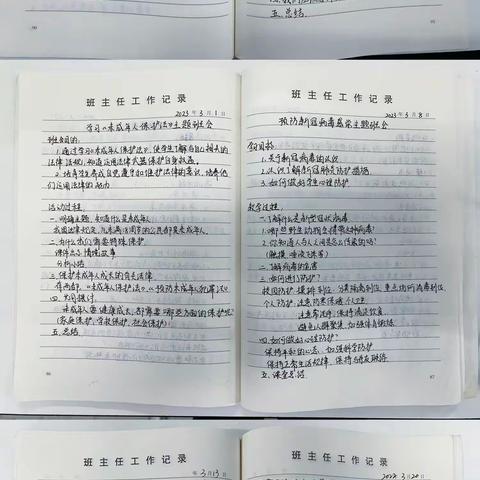 五、总结
90
91
班主任工作记录
2023年3月1日
学习《未成年人保护法》主题班会
班会目的:
1.通过学习《未成年人保护法》,使学生了解与自己相关的
法律法规,知道运用法律武器保护自身权益。
2.培养学生养成自觉遵守和维护法律的意识,培养他
们运用法律的能力
活动过程:
一.明确主题,知道什么是未成年人
我国法律规定,凡未满18周岁的公民都是未成年人。
二.为什么我们需要特殊保护
课件出示情境故事
分析小结
三.保护未成年人成长的有关法律
有两部.《未成年人保护法》.《预防未成年人犯罪法》
四.大问探讨.
未成年人要健康成长,都需要哪些方面的保护呢?
(家庭保护、学校保护、社会保护)
五.总结
86
班主任工作记录
2023年3月8日
预防新冠病毒感染主题班会
学习目标:
1.关于新冠病毒的认识
2.认识了解新冠肺炎防护措施
3.如何做好学生心理防护
教学过程:
一.了解什么是新型冠状病毒
1.哪些野生动物会携带这种病毒?
2.你知道人与人之间是怎么传染的吗?
二.了解病毒的危害
三.如何进行防护?
个人防护,注意防寒保暖 个卫生
注意常洗手,保持清淡饮食
避免人群聚集,加强体育锻炼
四.如何做好心理防护?
保持平和的心态,加强科学防护
保持正常生活规律,保持与好友联络
五.课堂总结
87
班主任工作记录
年3月13日
班主任工作记录
2023年3月20日